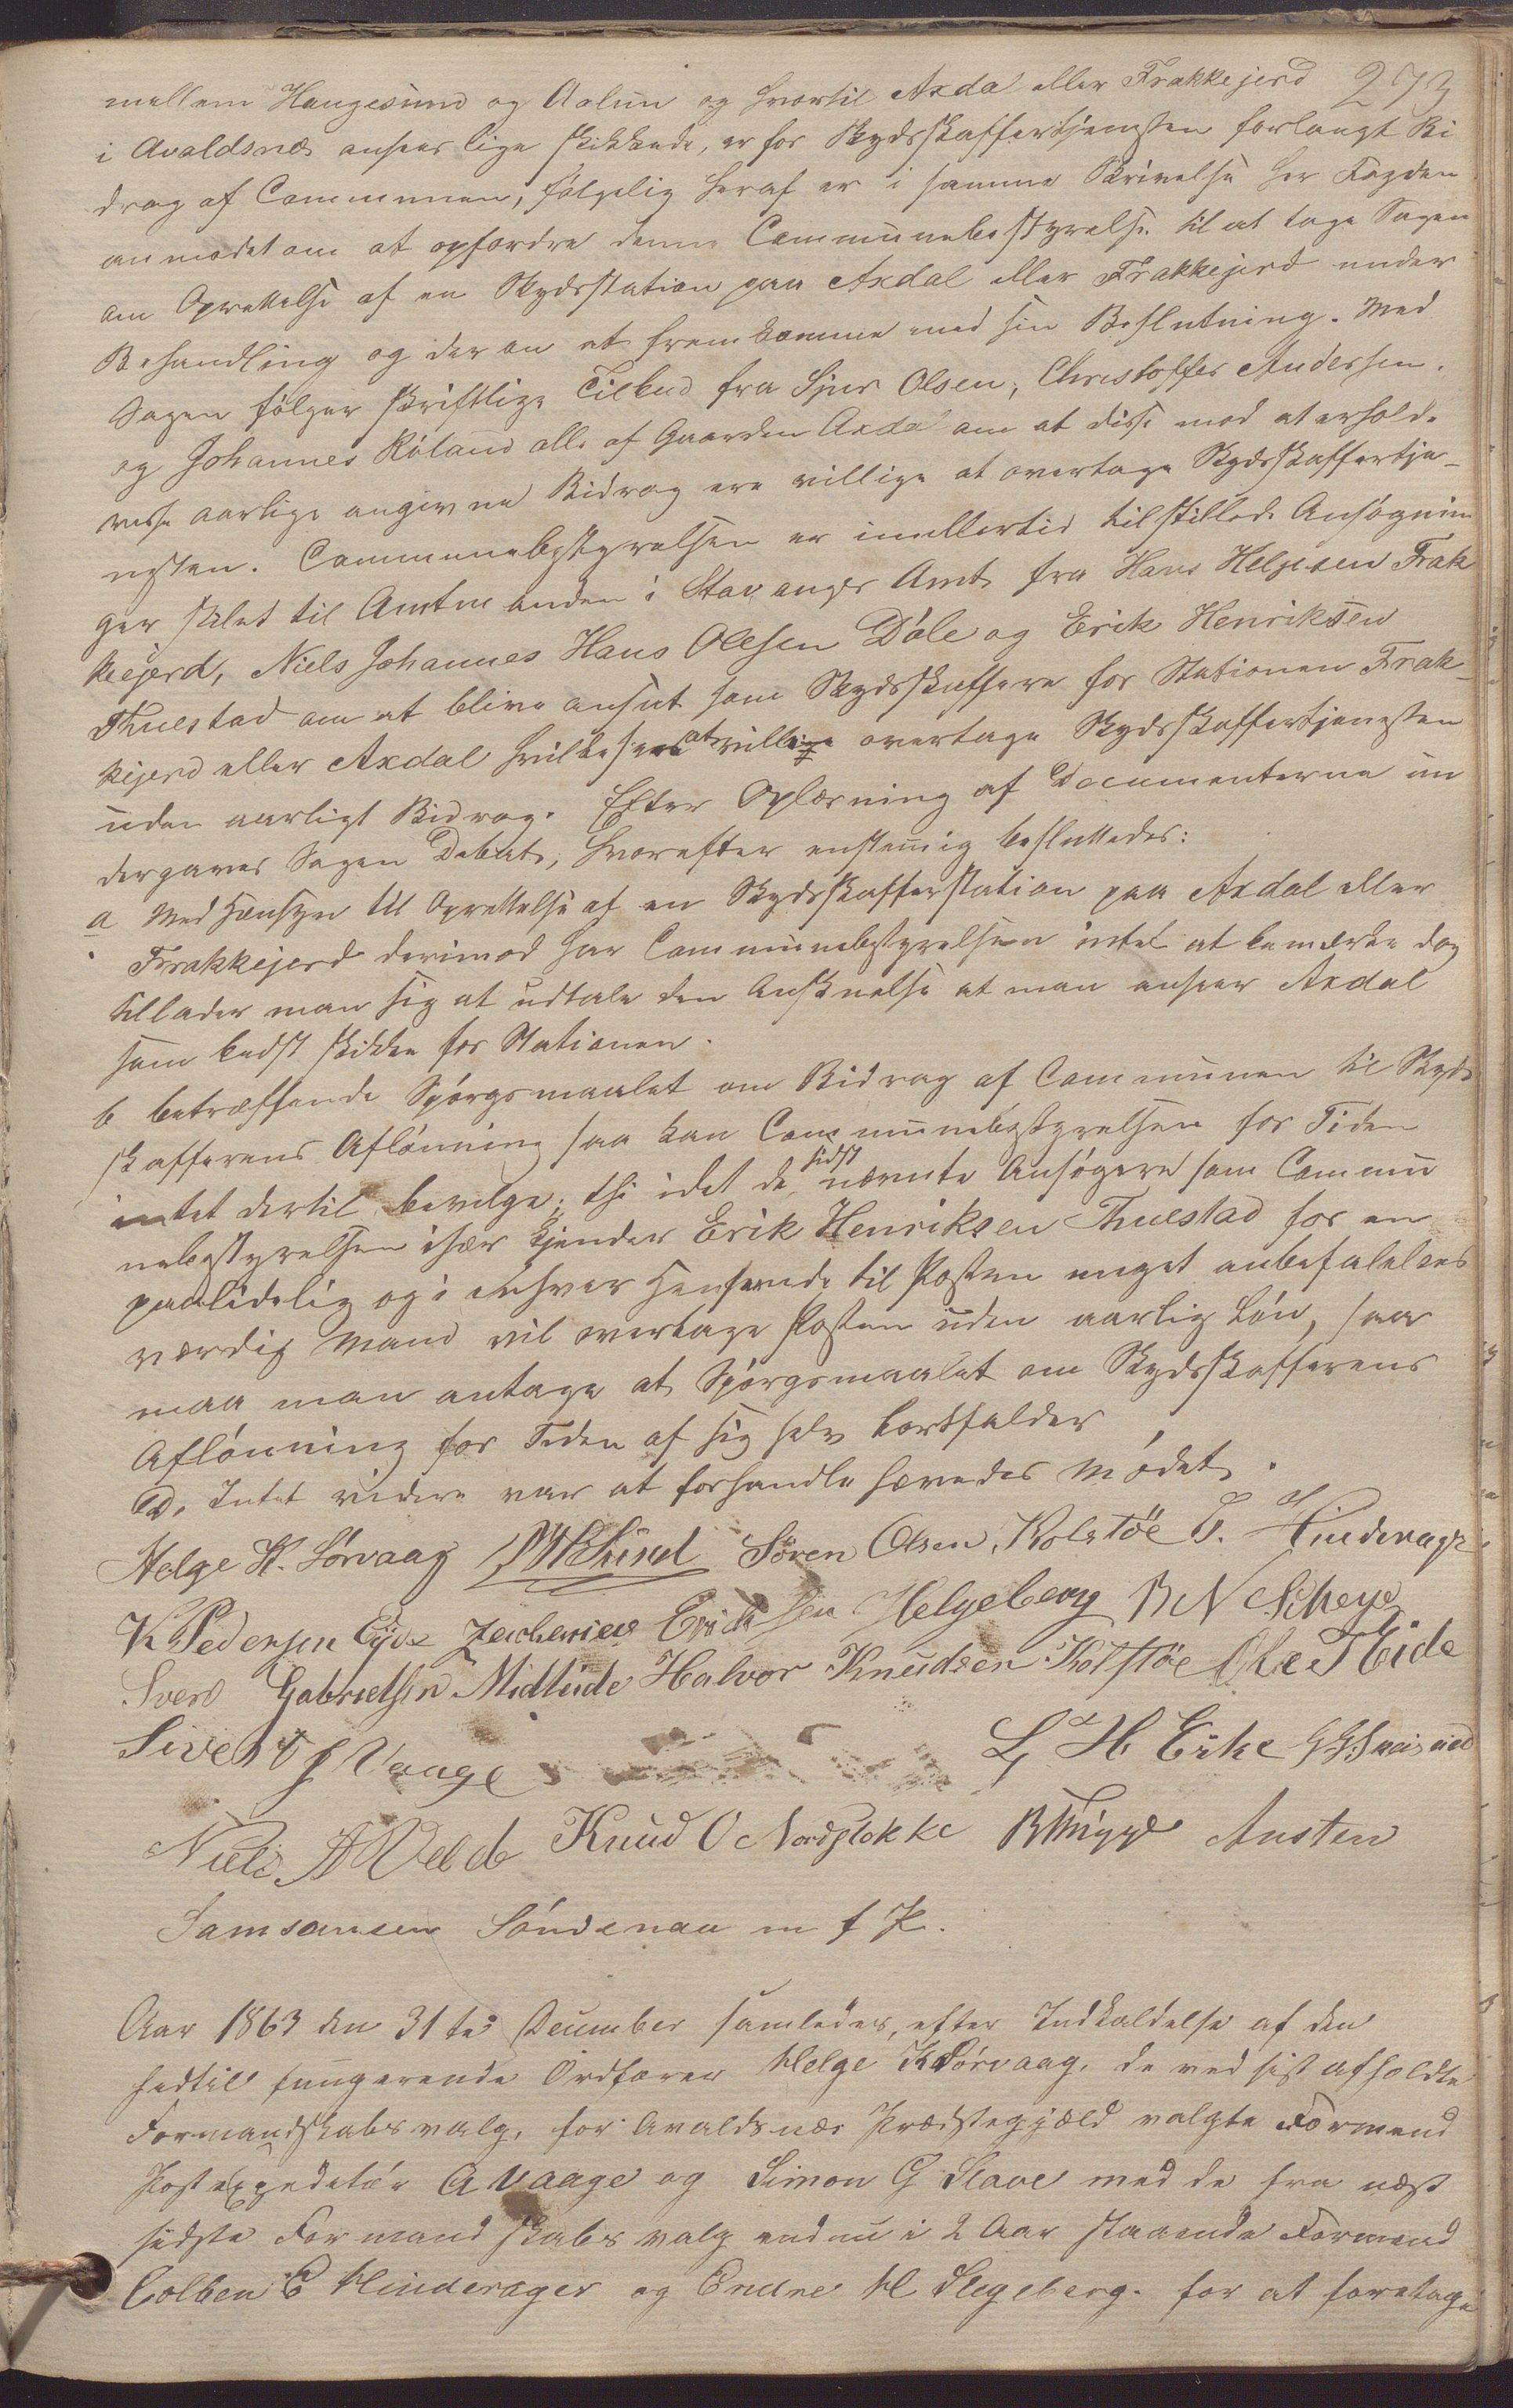 273
mellem Haugesund og Aalun og hvortil Axdal eller Frakkejerd
i Avaldsnæs ansees lige skikkede, er for Skydsskaffertjenesten forlangt Bi
drag af Communen, følgelig heraf er i samme Skrivelse Hr Fogden
anmodet om at opfordre denne Communebestyrelse til at tage Sagen
om Oprettelse af en Skydsstation paa Axdal eller Frakkejerd under
Behandling og derom at fremkomme med sin Beslutning. Med
Sagen følger skriftlige Tilbud fra Sjur Olsen, Christoffer Andersen.
og Johannes Røland alle af Gaarden Axdal om at disse mod at erholde
visse aarlige angivne Bidrag ere villige at overtage Skydsskaffertje-
nesten. Communebestyrelsen er imellertid tilstillede Ansøgnin
ger stilet til Amtmanden i Stavanger Amt fra Hans Helgesen Frak
kejerd, Niels Johannes Hans Olesen Døle og Erik Henriksen
Thuestad om at blive ansat som Skydsskaffere for Stationen Frak-
kejerd eller Axdal hvilke at ville overtage Skydsskaffertjenesten
uden aarligt Bidrag. Efter Oplæsning af Documenterne un
dergaves Sagen Debat, hvorefter enstemig besluttedes:
a Med Hensyn til Oprettelse af en Skydsskafferstation paa Axdal eller
Frakkejerd derimod har Communebestyrelsen intet at bemærke dog
tillader man sig at udtale den Anskuelse at man anseer Axdal
som bedst skikket for Stationen.
b betræffende Spørgsmaalet om Bidrag af Communen til Skyds
skafferens Aflønning saa kan Communebestyrelsen for Tiden
intet dertil bevilge; thi idet de sidst nævnte Ansøgere som Commu
nebestyrelsen især kjender Erik Henriksen Thuestad for en
paalidelig og i enhver Henseende til Posten meget anbefalelses
værdig Mand vil overtage Posten uden aarlig Løn, saa
maa man antage at Spørgsmaalet om Skydsskafferens
Aflønning for Tiden af sig selv bortfalder
Da Intet videre var at forhandle hævedes Mødet.
Helge K. Sørvaag Søren Olsen Kolstöe C. E Hinderager
K Pedersen Eide Zacharias Erichsen Helgeberg B N Scheye
Svend Gabrielsen Midtüde Halvor Knudsen Kolstöe Ole T Eide
Sivert J Vaage L H Eike
Niels A Velde Knud O Nordstokke B Thügge Austen
Samsonsen Söndenaa m f P.
Aar 1863 den 31te December samledes, efter Indkaldelse af den
hidtil fungerende Ordfører Helge K Sørvaag, de ved sist afholdte
Formandskabsvalg, for Avaldsnæs Prædstegjæld valgte Formend
Postexpeditør A Vaage og Simon G Stave med de fra næst
sidste Formandskabsvalg endnu i 2 Aar staaende Formend
Colben E Hinderager og Endre H Hegeberg. for at foretage